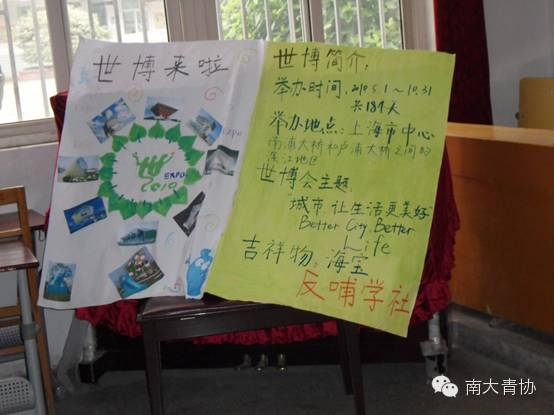 世博来啦
世
2010
EXPO
EXPO
世博简介:
举办时间:2010.5.1~10.31
共184天
举办地点:上海市中心
南浦大桥和卢浦大桥之间的
滨江地区
世博会主题:
城市,让生活更美好
Better City, Better
Life
吉祥物:海宝
反哺学社
南大青协